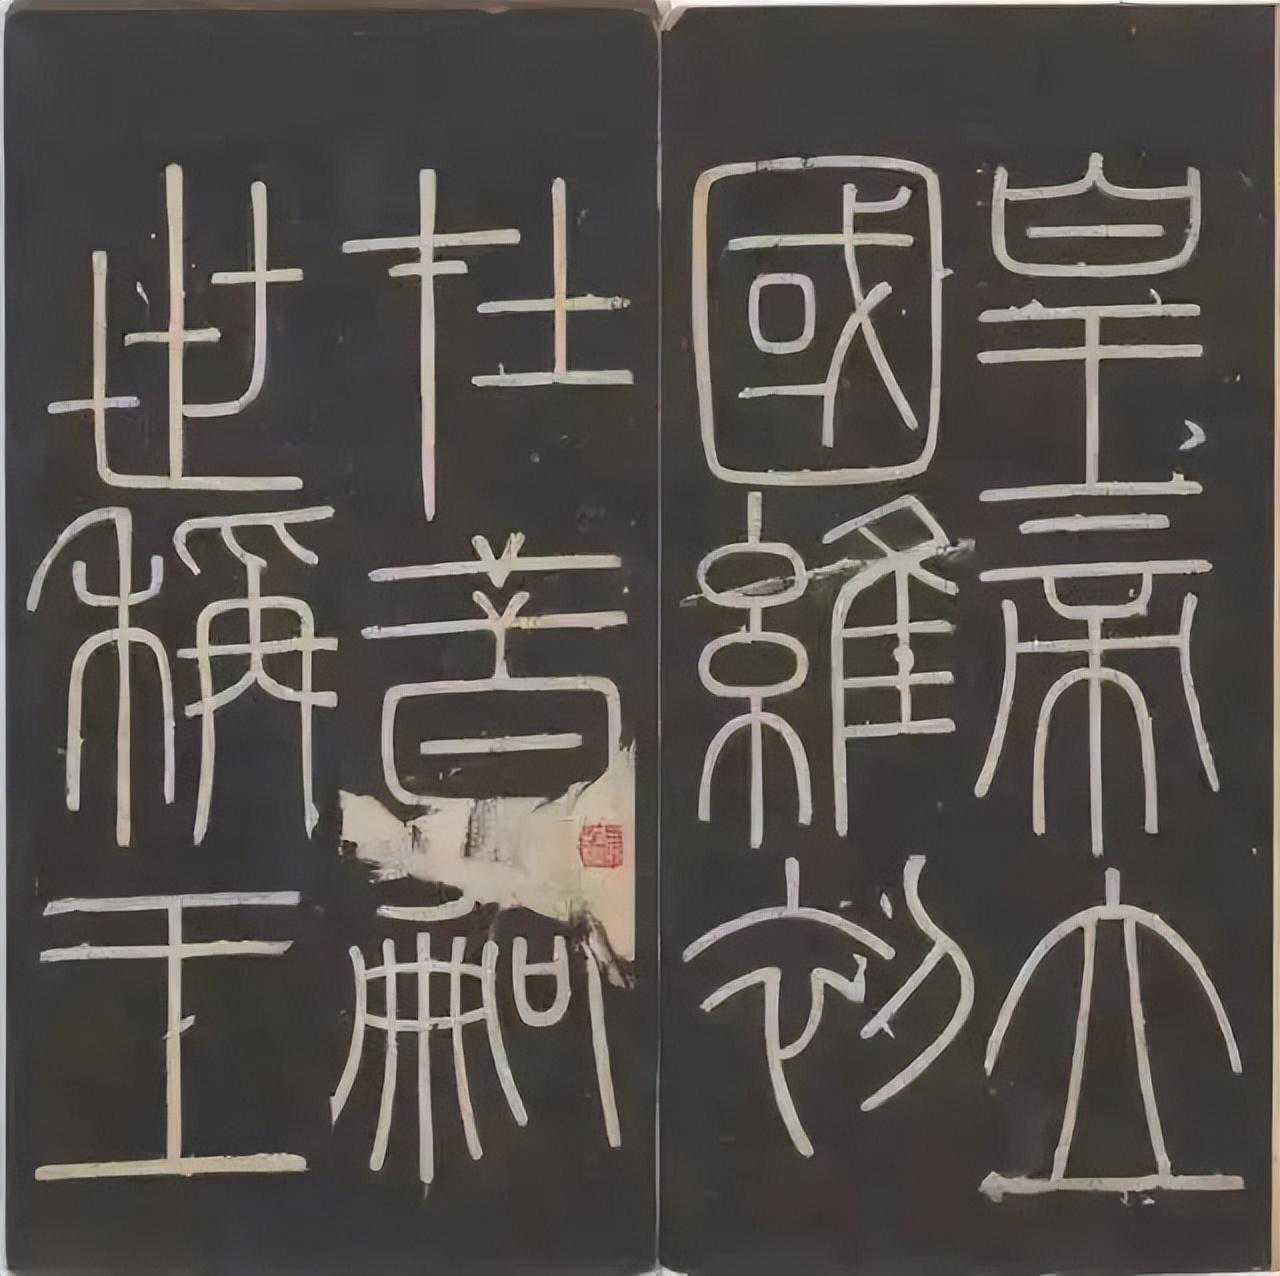 皇帝立
國維初
在昔嗣
世稱王